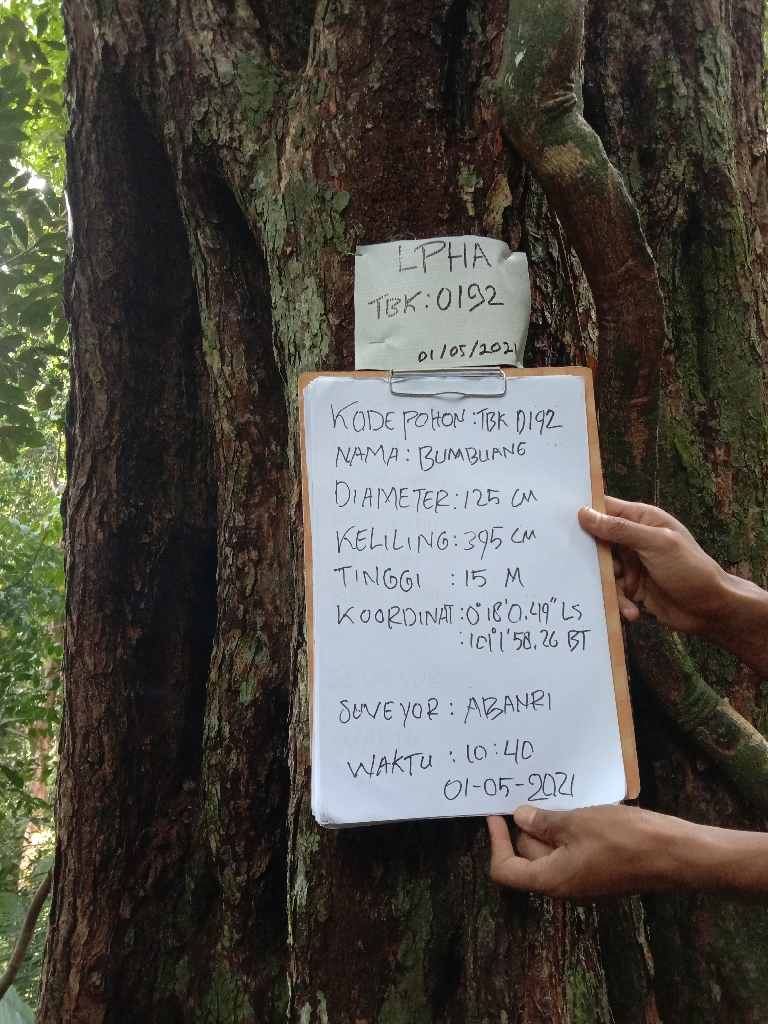 LPHA
TBK:0192
01/05/2021
KODE POHON : TBK 0192
NAMA : BUMBUANG
DIAMETER : 125 CM
KELILING : 395 CM
TINGGI : 15 M
KOORDINAT : 0°18'0.49" LS
: 101°1'58.26 BT
SUVEYOR : ABANRI
WAKTU : 10:40
01-05-2021